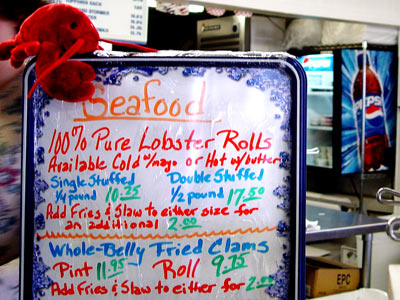 Seafood
100% Pure Lobster Rolls
Available Cold w/mayo or Hot w/butter
Single Stuffed Double Stuffed
1/4 pound 10.25 1/2 pound 17.50
Add Fries & Slaw to either size for
an additional 2.00
Whole-Belly Fried Clams
Pint 11.95 Roll 9.75
Add Fries & Slaw to either for 2.00
PEPSI
EPC